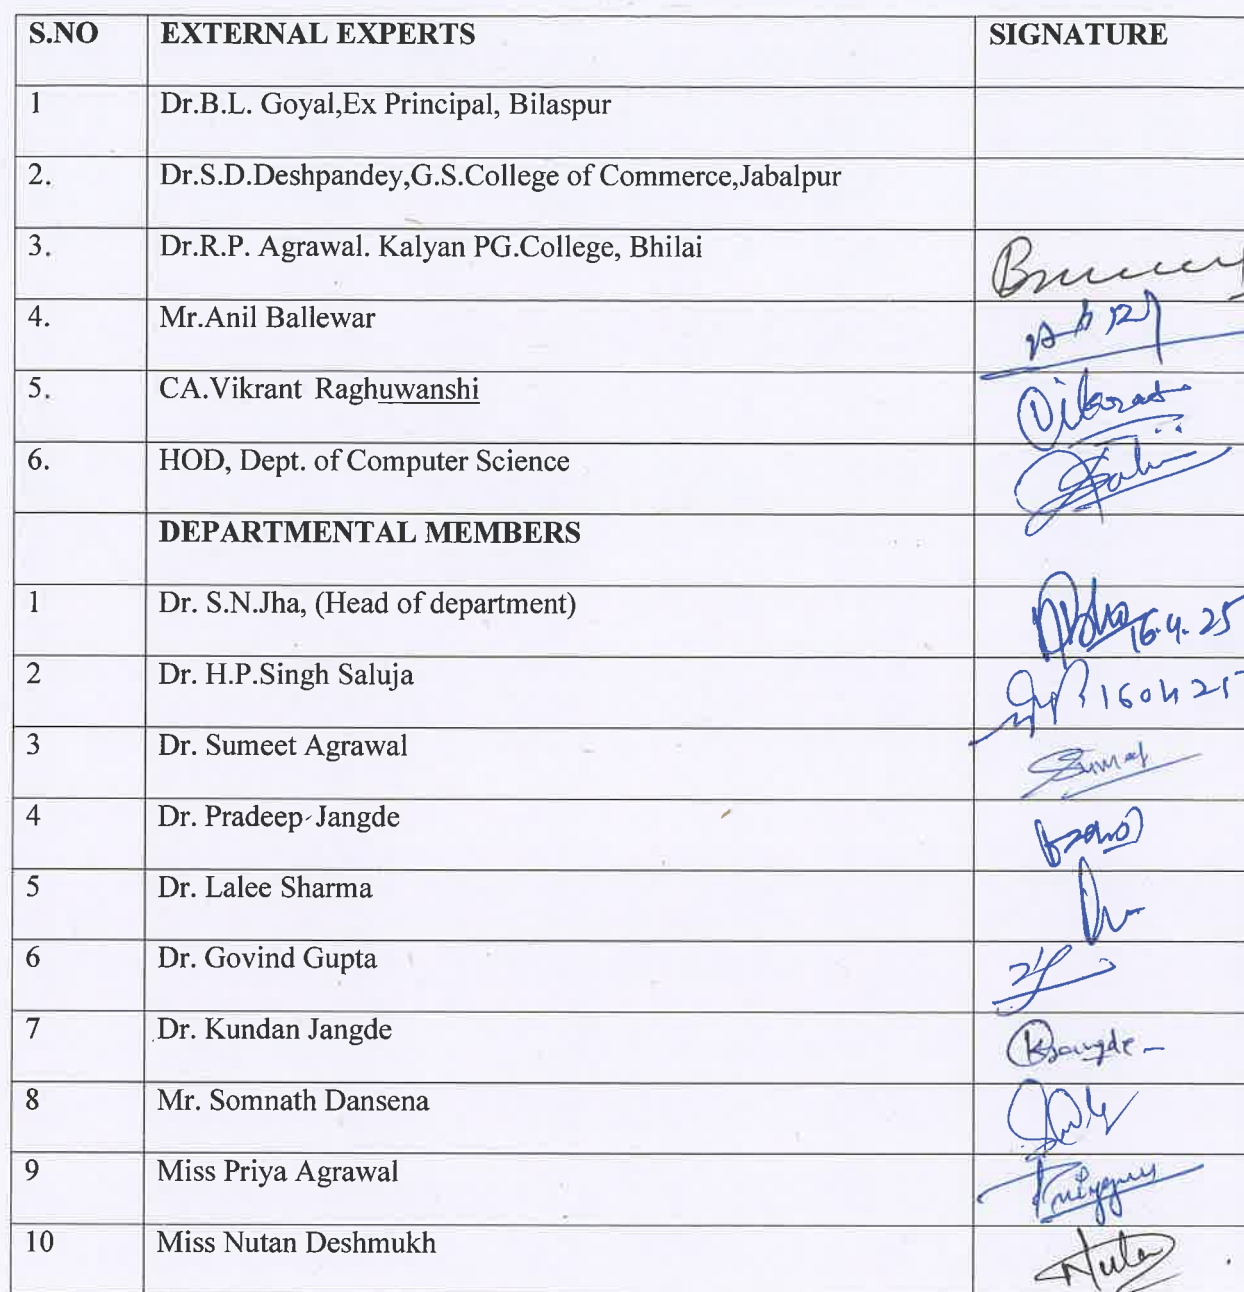 S.NO EXTERNAL EXPERTS SIGNATURE
1 Dr.B.L. Goyal,Ex Principal, Bilaspur
2. Dr.S.D.Deshpandey,G.S.College of Commerce,Jabalpur
3. Dr.R.P. Agrawal. Kalyan PG.College, Bhilai
4. Mr.Anil Ballewar
5. CA.Vikrant Raghuwanshi
6. HOD, Dept. of Computer Science
DEPARTMENTAL MEMBERS
1 Dr. S.N.Jha, (Head of department) 16.4.25
2 Dr. H.P.Singh Saluja
3 Dr. Sumeet Agrawal
4 Dr. Pradeep Jangde
5 Dr. Lalee Sharma
6 Dr. Govind Gupta
7 Dr. Kundan Jangde
8 Mr. Somnath Dansena
9 Miss Priya Agrawal
10 Miss Nutan Deshmukh